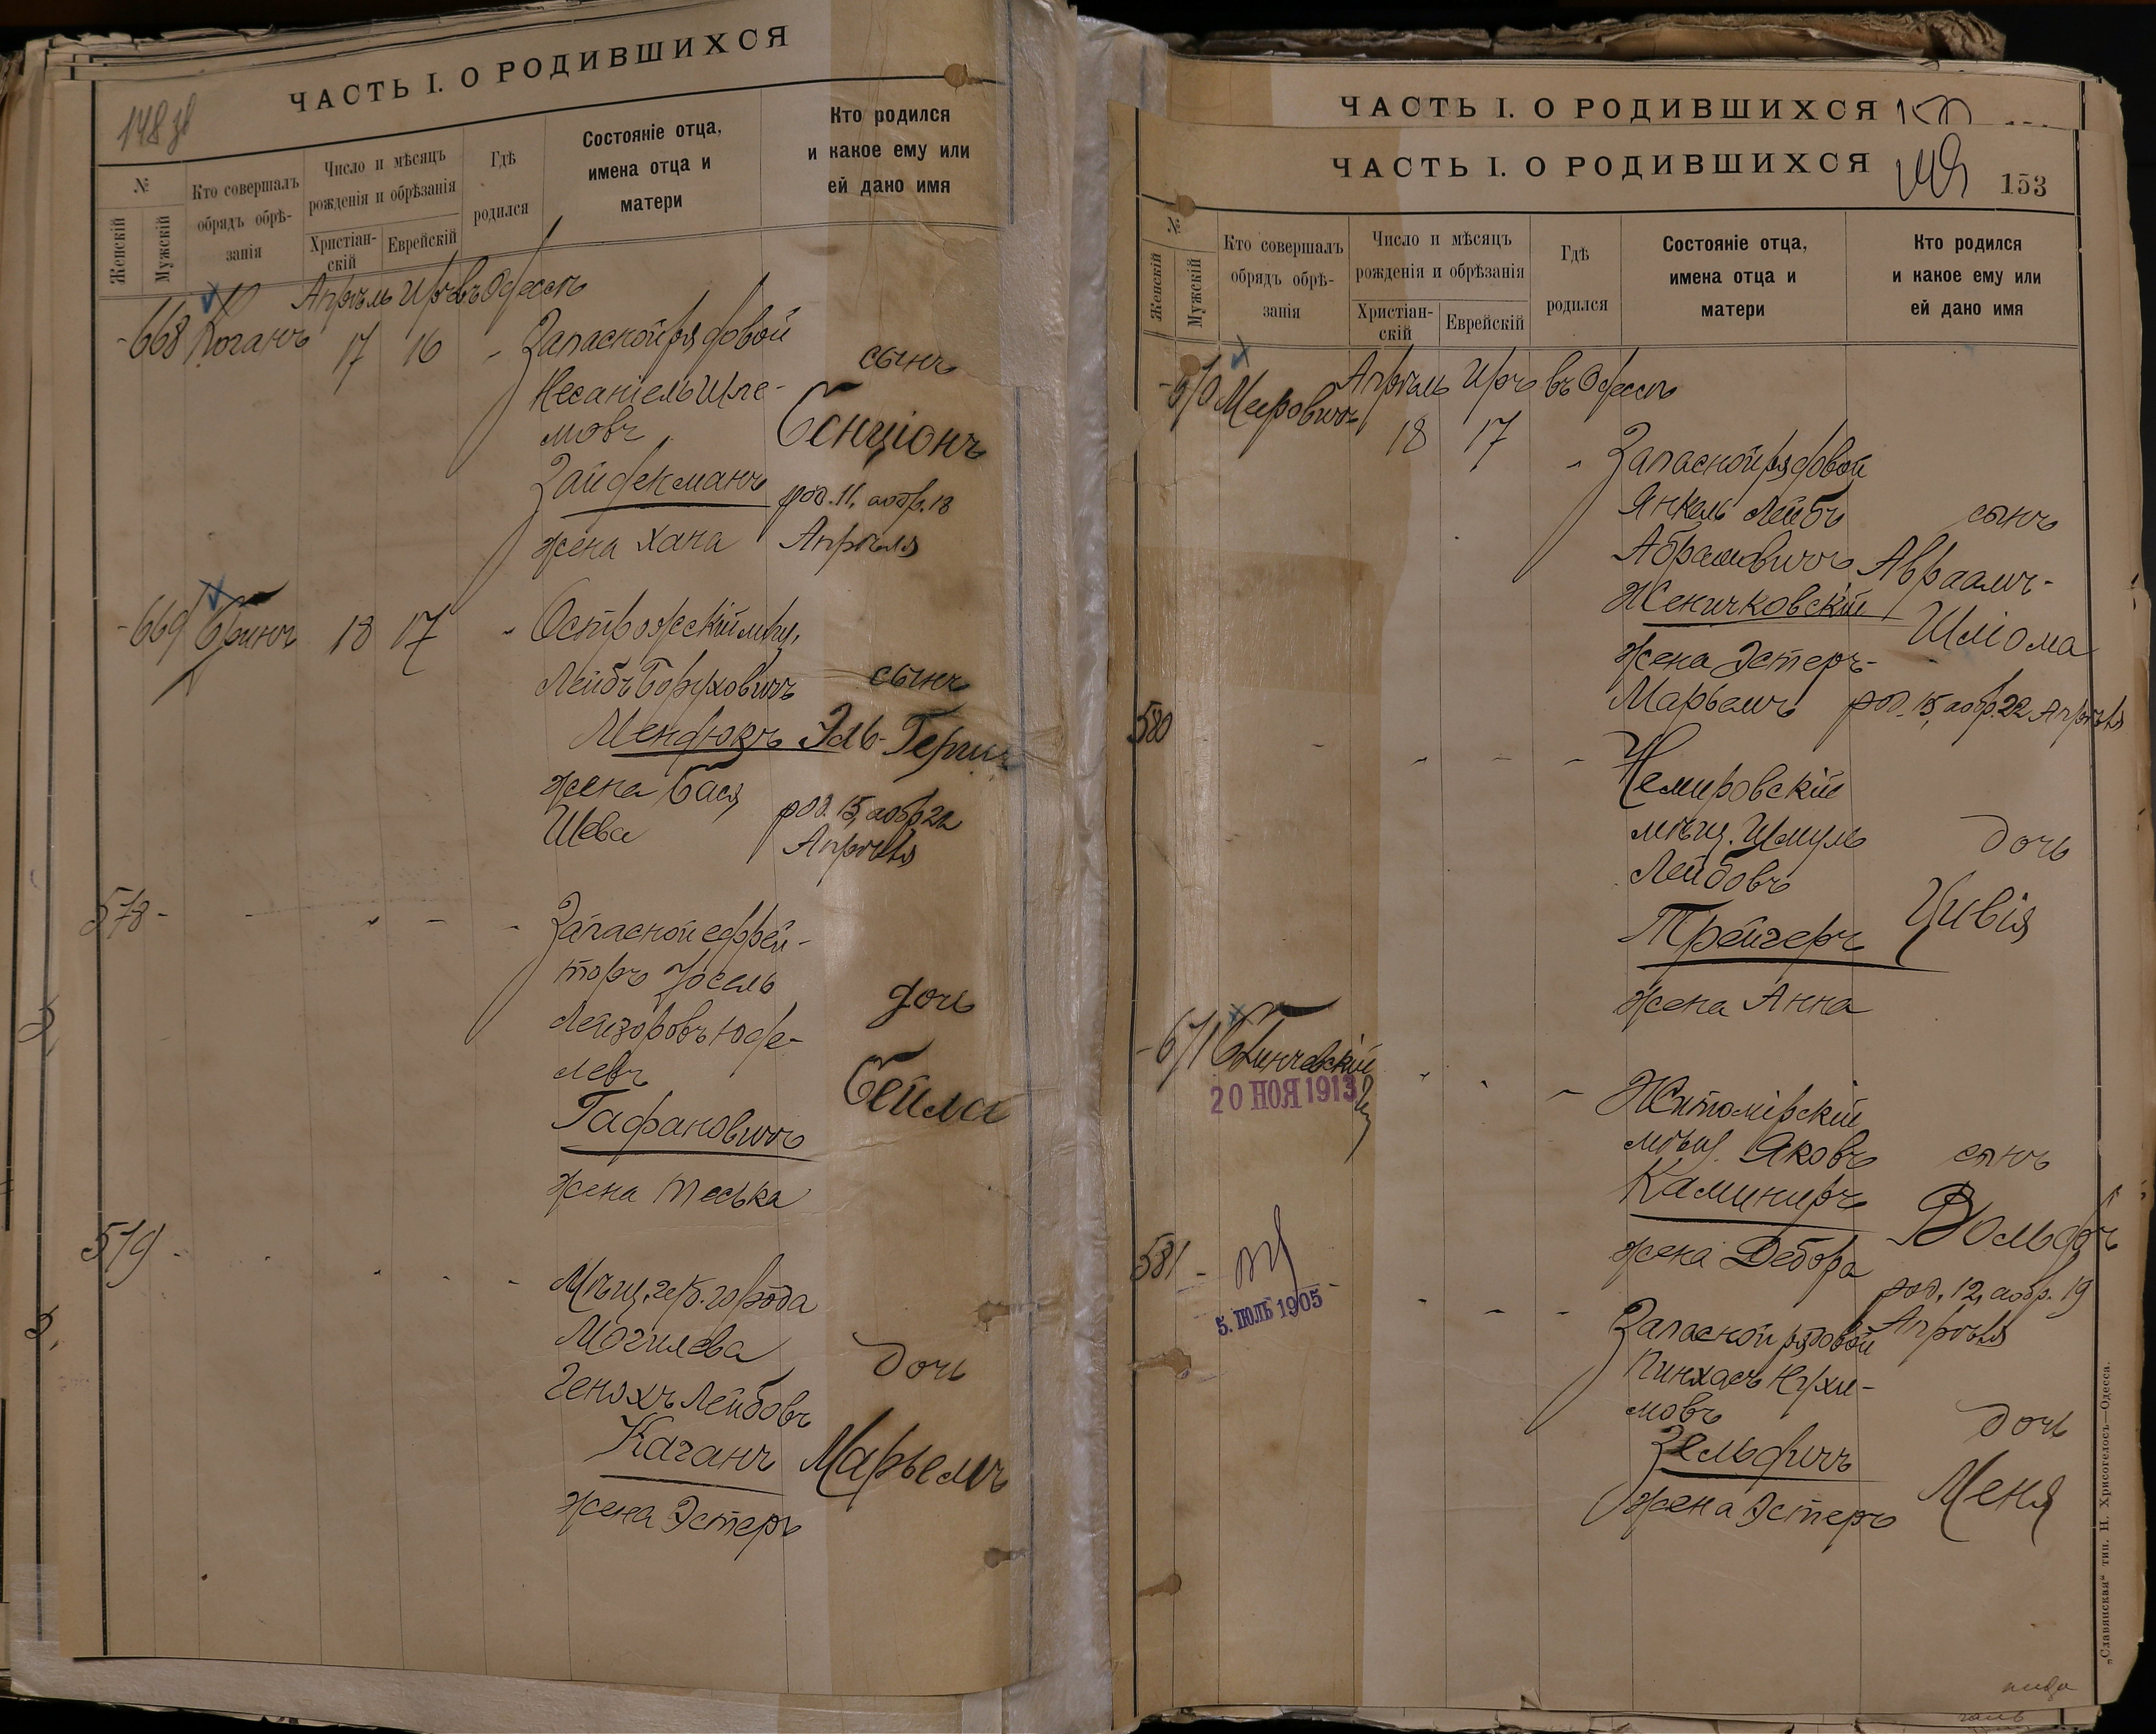 ЧАСТЬ I. О РОДИВШИХСЯ
№
Женскій
Мужскій
Кто совершалъ
обрядъ обрѣ-
занія
Число и мѣсяцъ
рожденія и обрѣзанія
Христіан-
скій
Еврейскій
Гдѣ
родился
Состояніе отца,
имена отца и
матери
Кто родился
и какое ему или
ей дано имя
Апрѣль Иръ въ Одессѣ
668 Коганъ 17 16
Запасной рядовой
Несаніель Шле-
мовъ
Зайдекманъ
жена Хана
сынъ
Бенціонъ
род. 11, а обр. 18
Апрѣля
669 Бринъ 18 17
Острожскій мѣщ.
Лейбъ Боруховичъ
Мендюкъ
жена Бася
Шева
сынъ
Эль-Гершъ
род. 15, а обр 22
Апрѣля
578 -
Запасной ефрей-
торъ Іосель
Лейзоровъ Юде-
левъ
Гафановичъ
жена Песька
дочь
Бейла
579 -
Мѣщ. губ. города
Могилева
Генохъ Лейбовъ
Каганъ
жена Эстеръ
дочь
Марьемъ
ЧАСТЬ I. О РОДИВШИХСЯ
ЧАСТЬ I. О РОДИВШИХСЯ
149
153
№
Женскій
Мужскій
Кто совершалъ
обрядъ обрѣ-
занія
Число и мѣсяцъ
рожденія и обрѣзанія
Христіан-
скій
Еврейскій
Гдѣ
родился
Состояніе отца,
имена отца и
матери
Кто родился
и какое ему или
ей дано имя
Апрѣль Иръ въ Одессѣ
670 Меировичъ 18 17
Запасной рядовой
Янкель Лейбъ
Абрамовичъ
Женичковскій
жена Эстеръ-
Марьемъ
сынъ
Авраамъ-
Шліома
род. 15, а обр. 22 Апрѣля
580
Немировскій
мѣщ. Шмуль
Лейбовъ
Трейгеръ
жена Анна
дочь
Цивія
671 Бѣличевскій
20 НОЯ 1913
Житомірскій
мѣщ. Яковъ
Каминиръ
жена Дебора
сынъ
Вольфъ
род. 12, а обр. 19
Апрѣля
581 -
5. ІЮЛЬ 1905
Запасной рядовой
Пинхасъ Нухи-
мовъ
Зельфичъ
жена Эстеръ
дочь
Меня
„Славянская“ тип. Н. Хрисогелосъ—Одесса.